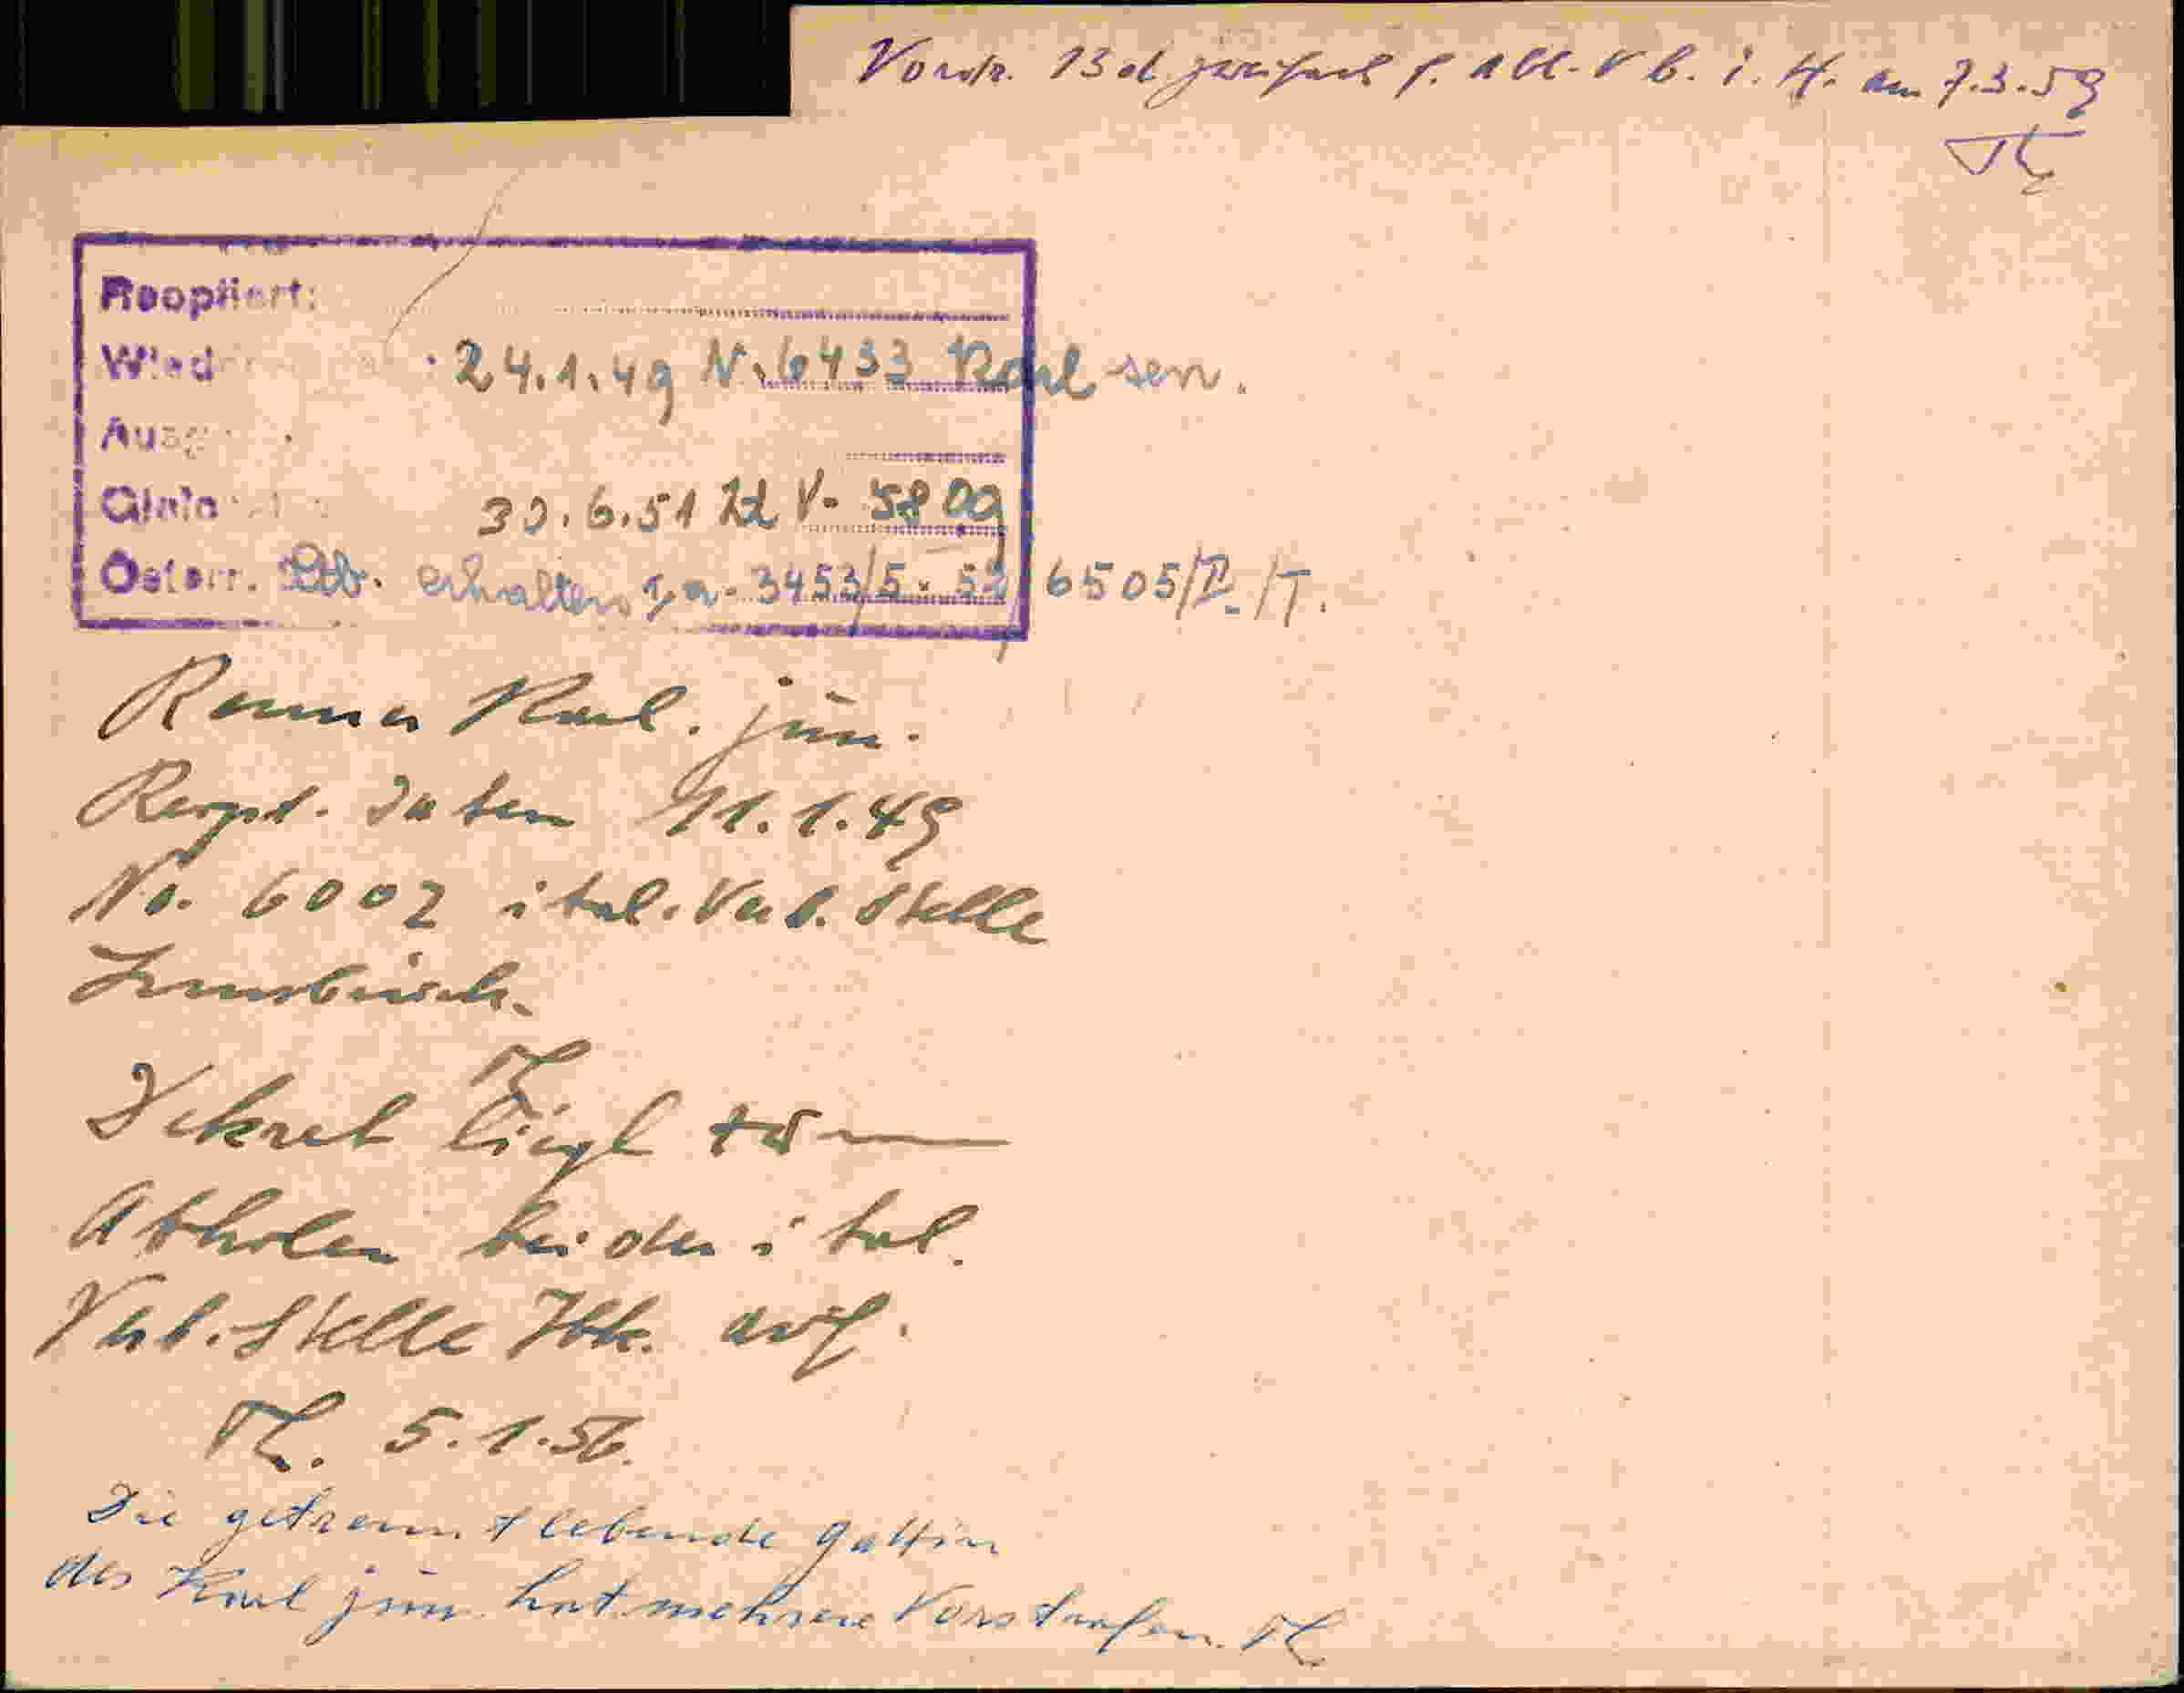 Vordr. 13 d zweifach f. all. V b. i. H. am 7.3.59
Reoptiert:
Wied 24.1.49 N. 6433 Karl sen.
Ausg
30.6.51 Zl V. 5800
Österr. Stb. erhalten 3453/5. 52 6505/II/T.
Karl. jun.
Reopt. Daten 11.1.49
No. 6002 ital. Verb. Stelle
Innsbruck.
Dekret liegt
Abholen bei der ital.
Verb. Stelle Ibk. auf.
5.1.56.
Die getrennt lebende Gattin
des Karl jun. hat mehrere Vorstrafen.